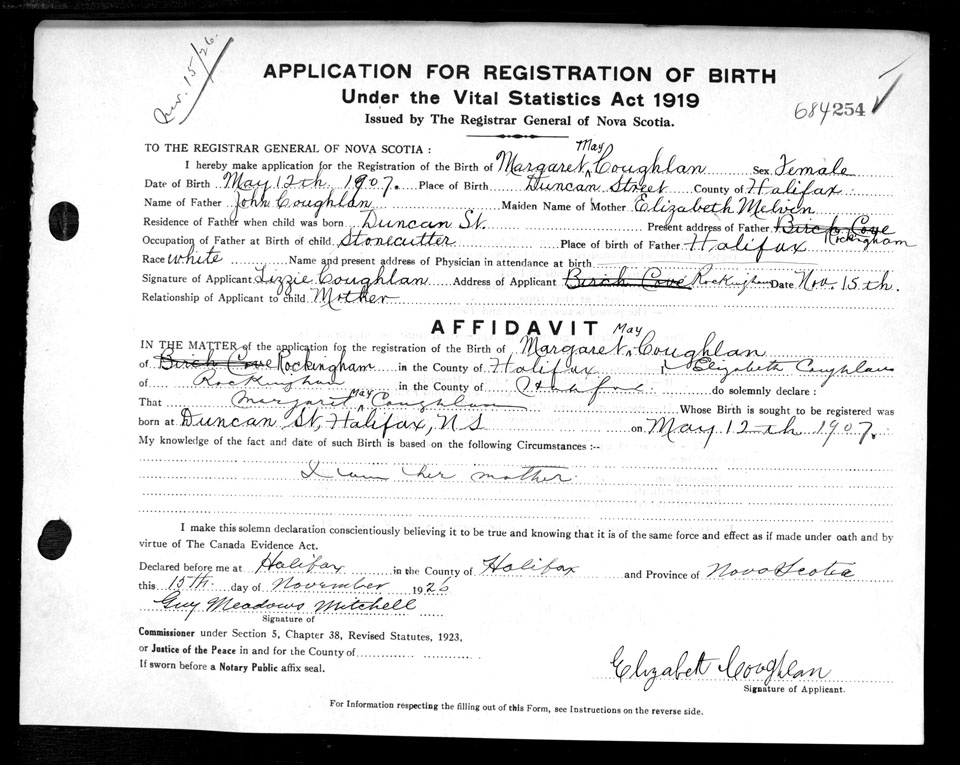 Nov. 15/26.
APPLICATION FOR REGISTRATION OF BIRTH
Under the Vital Statistics Act 1919
684254
Issued by The Registrar General of Nova Scotia.
TO THE REGISTRAR GENERAL OF NOVA SCOTIA :
I hereby make application for the Registration of the Birth of Margaret May Coughlan Sex Female
Date of Birth May 12th 1907. Place of Birth Duncan Street County of Halifax
Name of Father John Coughlan Maiden Name of Mother Elizabeth Melvin
Residence of Father when child was born Duncan St. Present address of Father Birch Cove Rockingham
Occupation of Father at Birth of child Stonecutter Place of birth of Father Halifax
Race White Name and present address of Physician in attendance at birth
Signature of Applicant Lizzie Coughlan Address of Applicant Birch Cove Rockingham Date Nov. 15th.
Relationship of Applicant to child Mother
AFFIDAVIT
IN THE MATTER of the application for the registration of the Birth of Margaret May Coughlan
of Birch Cove Rockingham in the County of Halifax I, Elizabeth Coughlan
of Rockingham in the County of Halifax do solemnly declare :
That Margaret May Coughlan Whose Birth is sought to be registered was
born at Duncan St, Halifax, N S on May 12th 1907.
My knowledge of the fact and date of such Birth is based on the following Circumstances :--
I am her mother.
I make this solemn declaration conscientiously believing it to be true and knowing that it is of the same force and effect as if made under oath and by
virtue of The Canada Evidence Act.
Declared before me at Halifax in the County of Halifax and Province of Nova Scotia
this 15th. day of November 1926
Guy Meadows Mitchell
Signature of
Commissioner under Section 5, Chapter 38, Revised Statutes, 1923,
or Justice of the Peace in and for the County of
If sworn before a Notary Public affix seal.
Elizabeth Coughlan
Signature of Applicant.
For Information respecting the filling out of this Form, see Instructions on the reverse side.